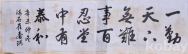 一勤
天下
無難
事百
忍堂
中有
泰和